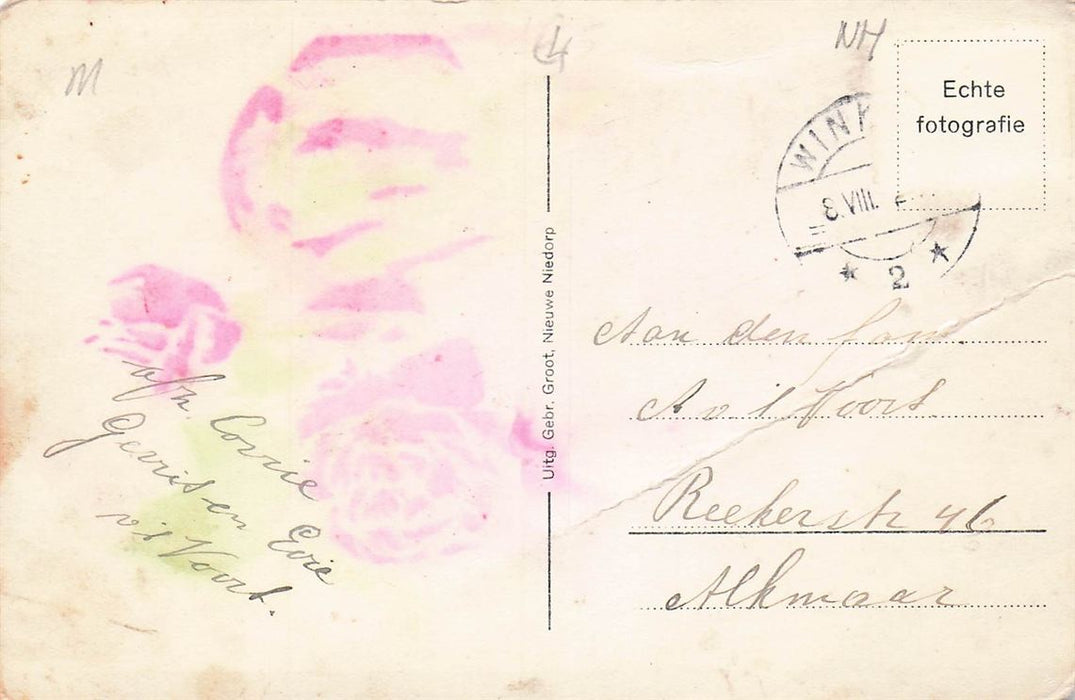 M
4
NH
Echte
fotografie
WINK
8.VIII.
2
Uitg. Gebr. Groot, Nieuwe Niedorp
Aan den fam.
A v 't Voort
Reekerstr 46
Alkmaar
afz. Corrie
Gerrit en Evie
v 't Voort.